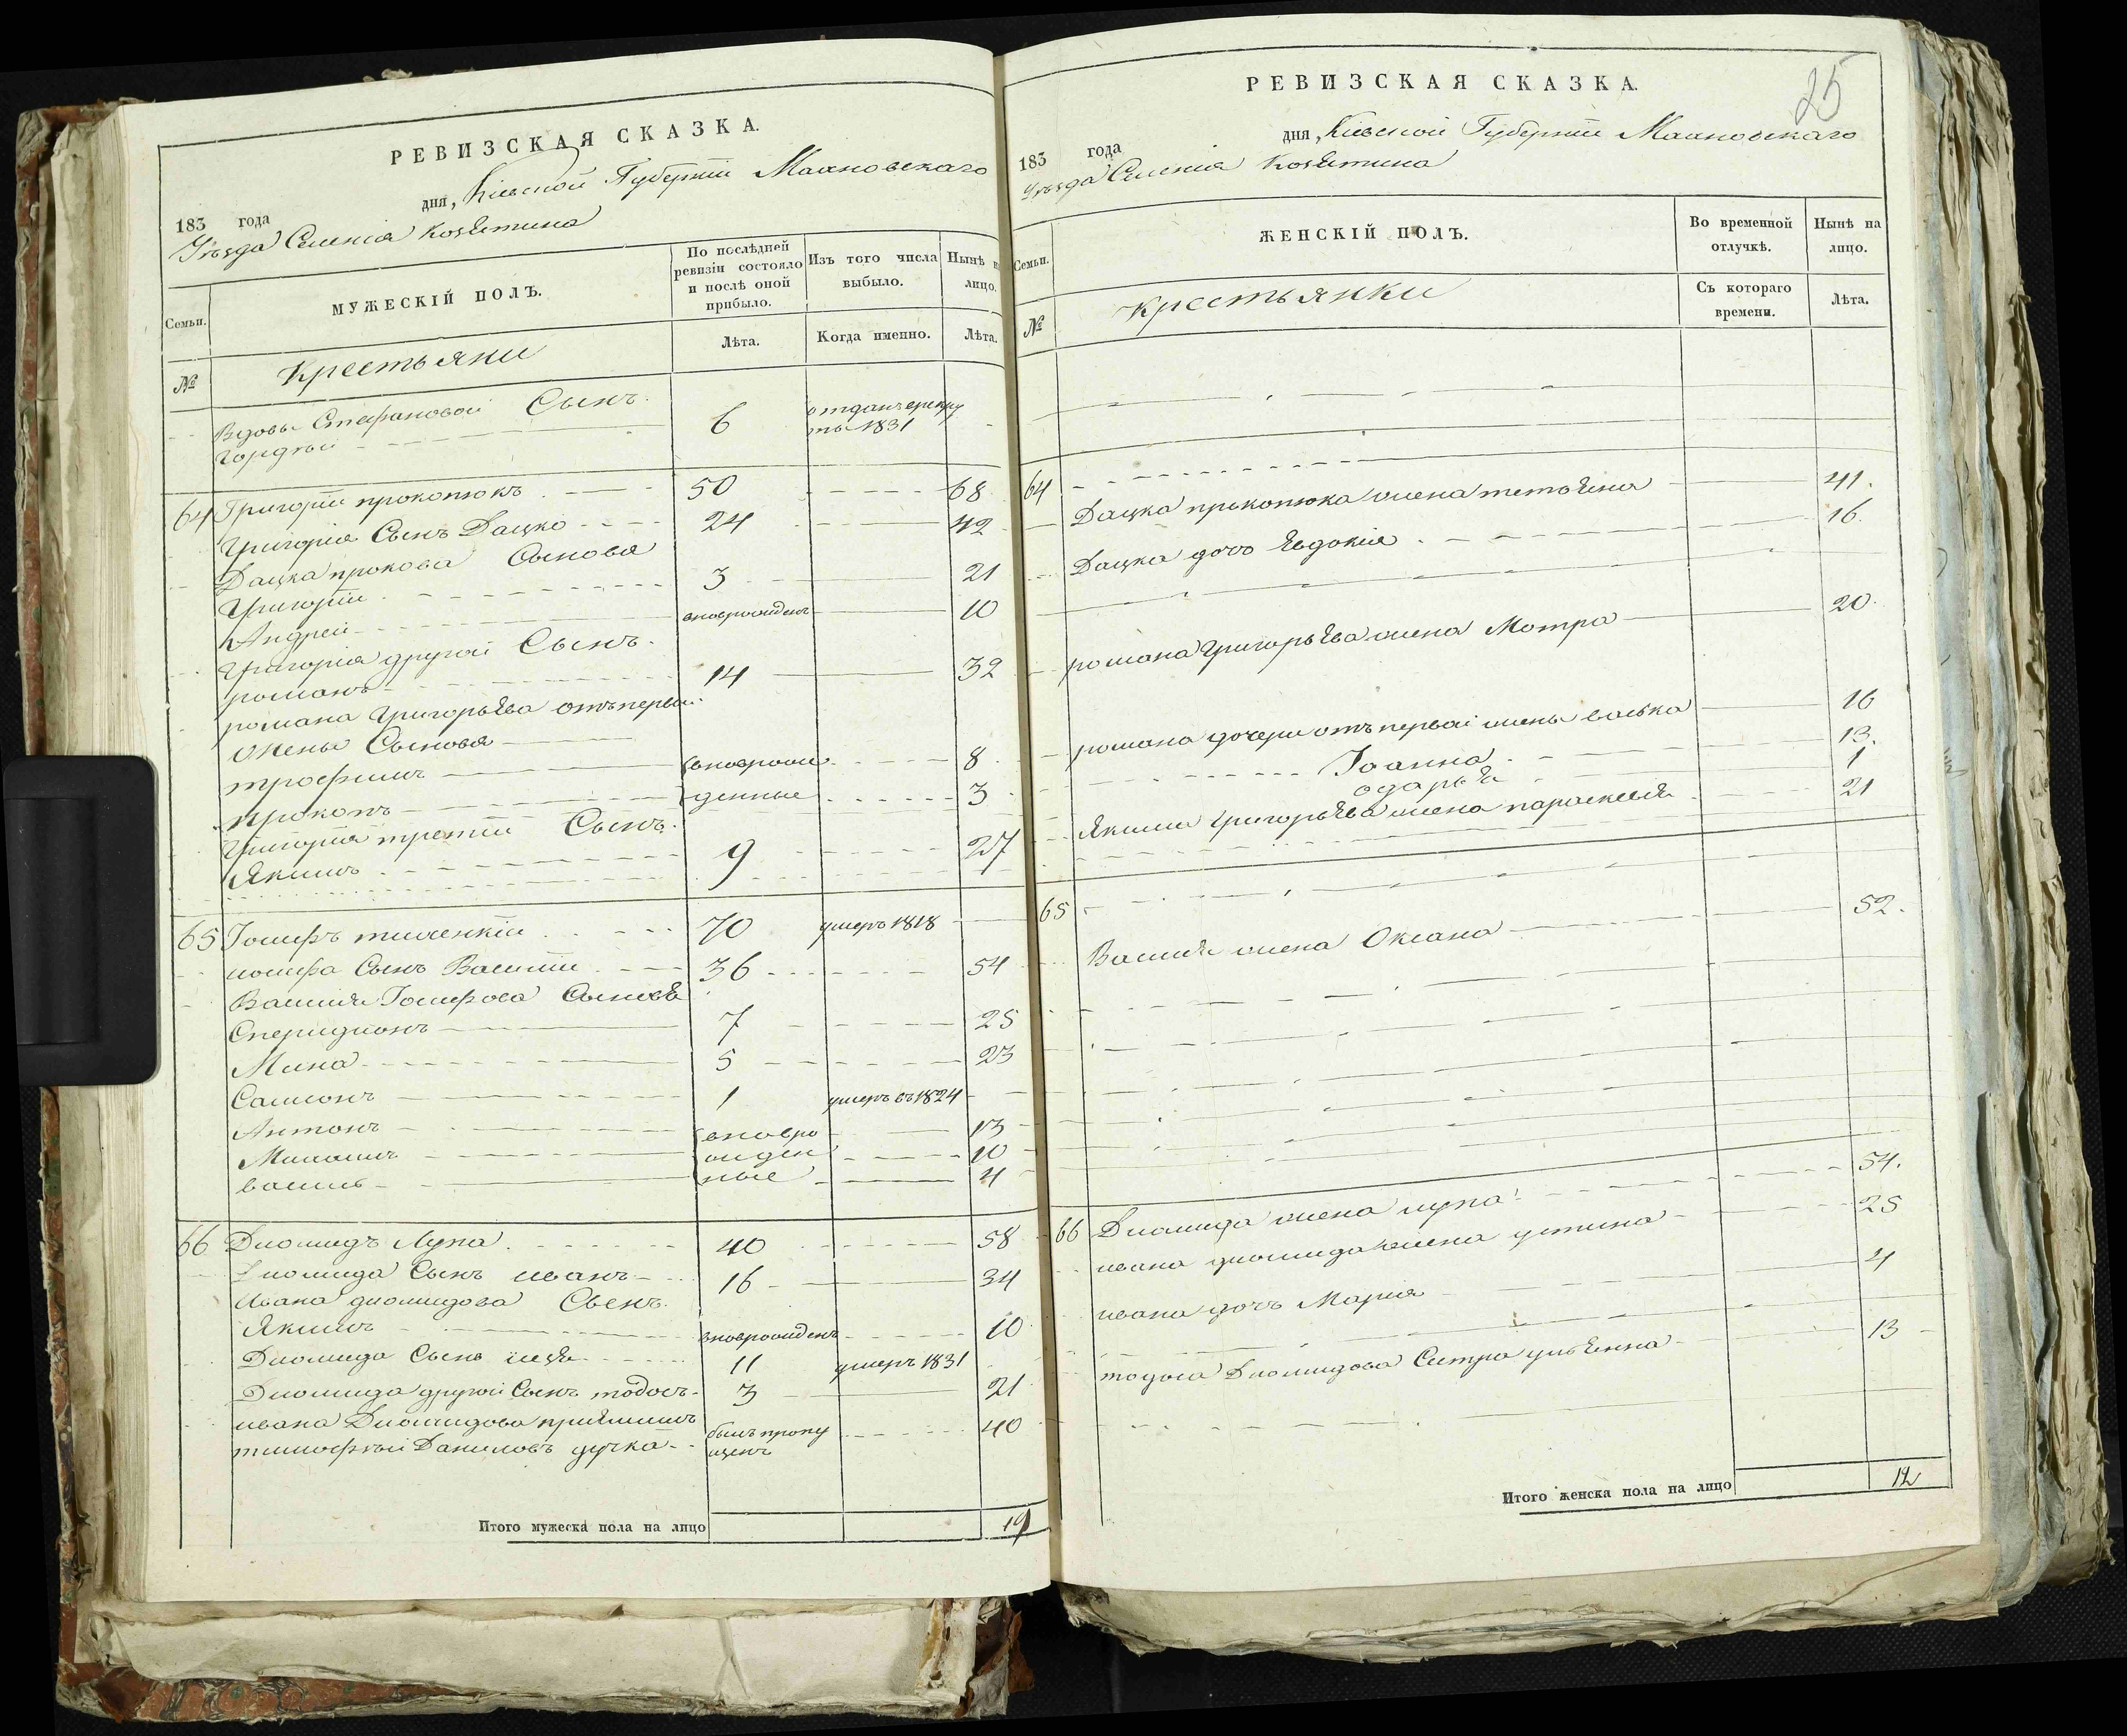 РЕВИЗСКАЯ СКАЗКА.
183 года дня, Кіевской Губерніи Махновскаго
Уѣзда Селенія Козѣтина
Семьи.
МУЖЕСКІЙ ПОЛЪ.
По послѣдней ревизіи состояло и послѣ оной прибыло.
Изъ того числа выбыло.
Нынѣ на лицо.
№
Крестьяни
Лѣта.
Когда именно.
Лѣта.
Вдовы Стефановой Сынъ
Гордѣй 6 отданъ врекру
ты 1831
64 Григорій прокопюкъ 50 68
Григорія Сынъ Дацко 24 42
Дацка прокова Сыновя
Григорій 3 21
Андрей вноврожденъ 10
Григорія другой Сынъ
романъ 14 32
романа Григорьева отъ первой
жены Сыновя
трофимъ вноврож 8
прокопъ денные 3
Григорія третій Сынъ
Якимъ 9 27
65 Іосифъ 70 умеръ 1818
иосифа Сынъ Василій 36 54
Василія Іосифова Сыновя
Спиридионъ 7 25
Мина 5 23
Самсонъ 1 умеръ въ 1824
Антонъ вновро 13
Максимъ жден 10
василь ные 4
66 Диомидъ Лупа 40 58
Диомида Сынъ иванъ 16 34
Ивана диомидова Сынъ
Якимъ вноврожденъ 10
Диомида Сынъ 11 умеръ 1831
Диомида другой Сынъ тодосъ 3 21
ивана Диомидова приемышъ былъ пропу 40
тимофѣй Даниловъ дучка щенъ
Итого мужеска пола на лицо 19
25
РЕВИЗСКАЯ СКАЗКА.
183 года дня, Кіевской Губерніи Махновскаго
Уѣзда Селенія Козѣтина
Семьи.
ЖЕНСКІЙ ПОЛЪ.
Во временной отлучкѣ.
Нынѣ на лицо.
№
Крестьянки
Съ котораго времени.
Лѣта.
64
Дацка прокопюка жена тетьяна 41.
Дацка дочь Евдокія 16.
романа Григорьева жена Мотра 20.
романа дочери отъ первой жены васька 16
Іоанна 13.
одарья 1
Якима Григорьева жена параскевія 21
65
Василя жена Оксана 52.
66 Диомида жена лупа 54.
ивана диомида жена устина 25
ивана дочь Марія 4
тодоса Диомидова Сестра ульянна 13
Итого женска пола на лицо 12